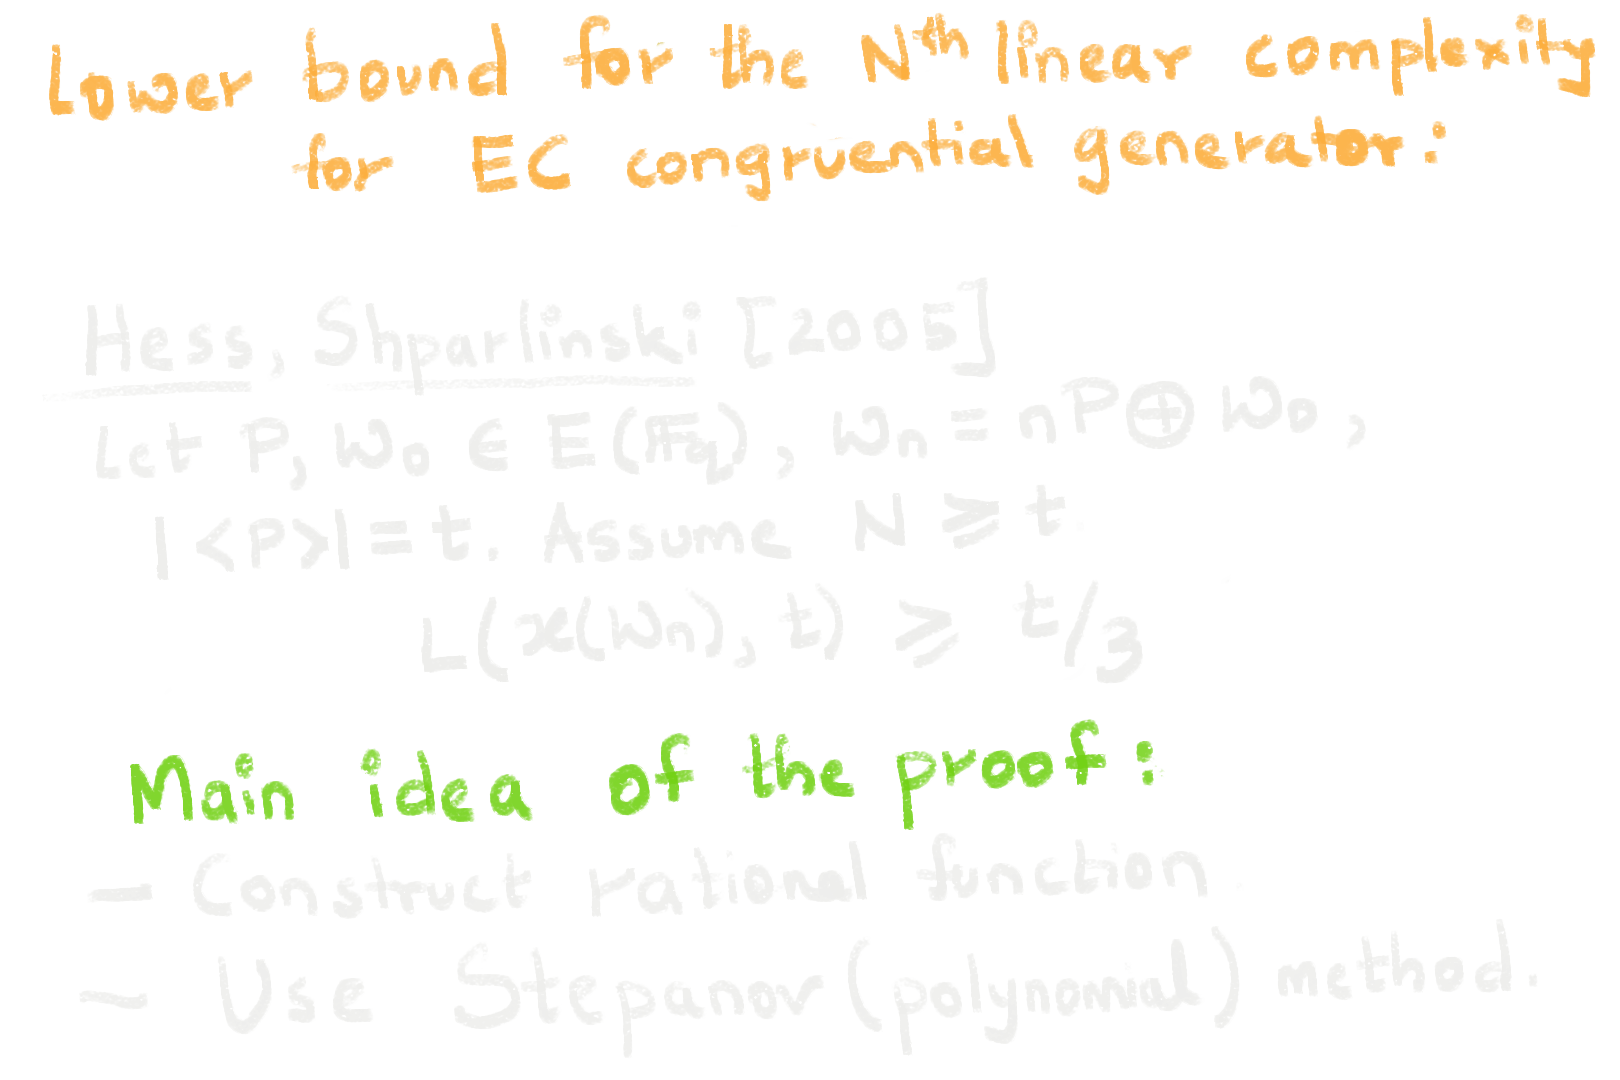 Lower bound for the Nth linear complexity
for EC congruential generator:
Hess, Shparlinski [2005]
Let P, W₀ ∈ E(𝔽q), Wₙ = nP ⊕ W₀,
|<P>| = t. Assume N ⩾ t
L(x(Wₙ), t) ⩾ t/3
Main idea of the proof:
— Construct rational function
— Use Stepanov (polynomial) method.